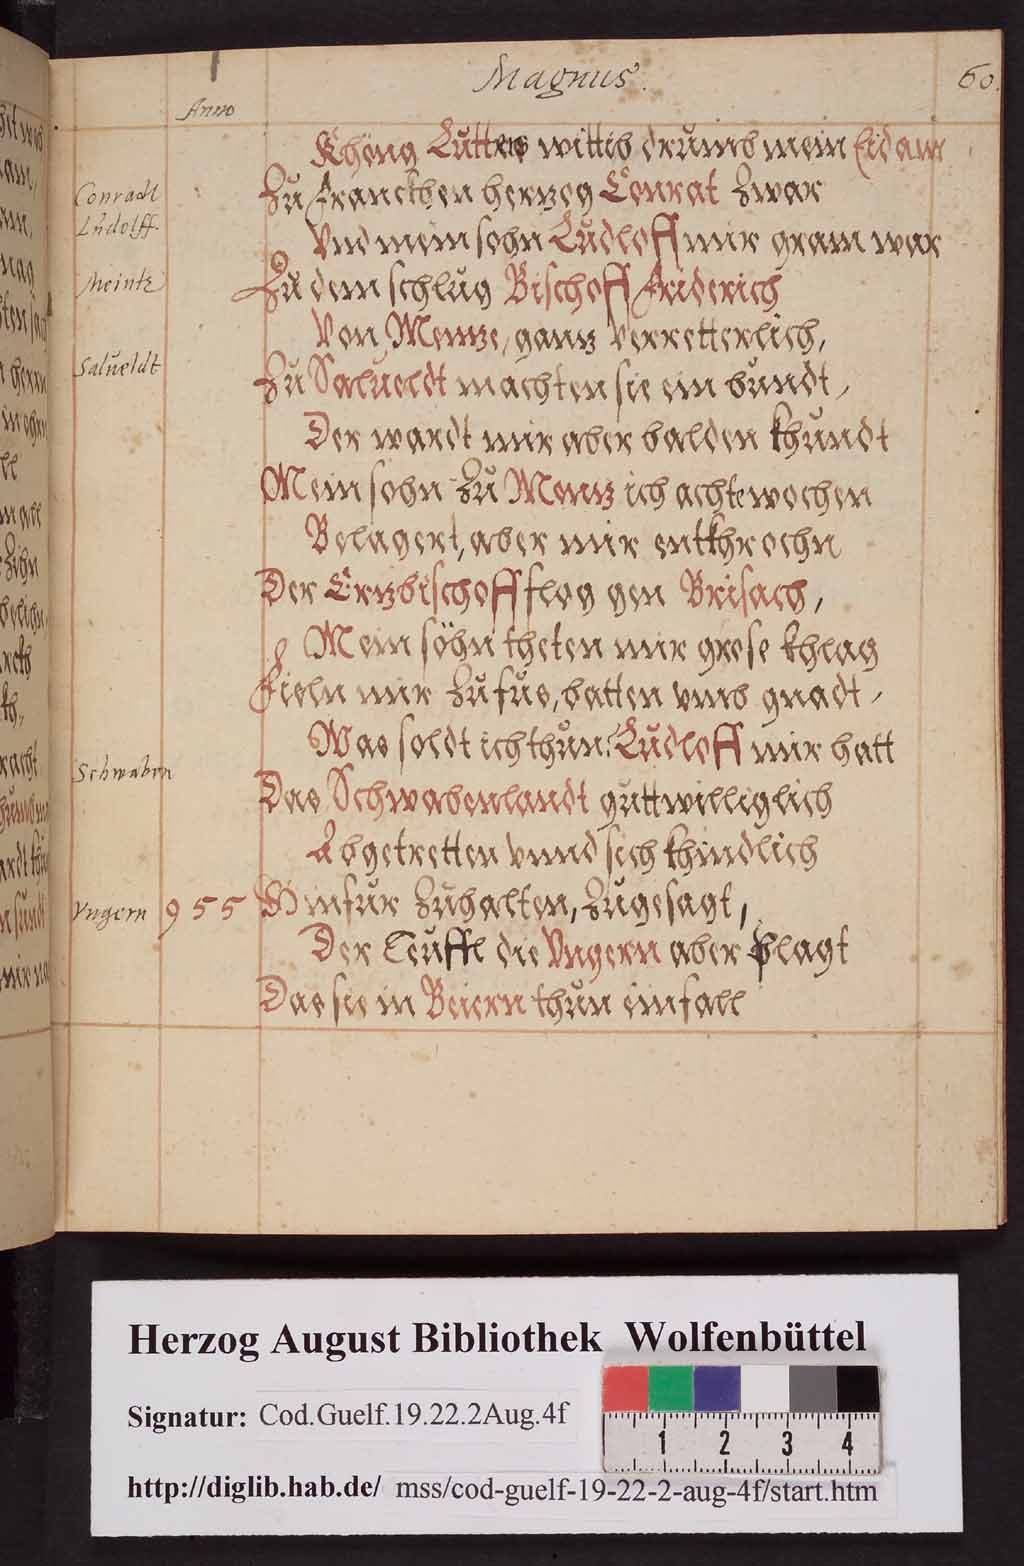 Magnus.
60.
Anno
Khönig Lutters wittib drumb mein Eidam
Conradt
Zu Franckhen herzog Conrat zwar
Ludolff
Vnd mein sohn Ludloff mir gram war
Meintz
Zu dem schlug Bischoff Friderich
Von Mentze, gantz verretterlich,
Salueldt
Zu Salueldt machten sie ein bundt,
Der wardt mir aber balden khundt
Mein sohn zu Mentz ich achte wochen
Belagert, aber mir entkhrochn
Der Ertzbischoff flog gen Brisach,
Mein söhn theten mir grose khlag
Fieln mir zu fus, batten vmb gnadt,
Was soldt ich thun. Ludloff mir hatt
Schwaben
Das Schwabenlandt guttwilliglich
Abgetretten vnnd sich khindlich
Vngern 955
Hinfur zuhalten, zugesagt,
Der Teuffl die Vngern aber plagt
Das sie in Beiern thun einfall
Herzog August Bibliothek Wolfenbüttel
Signatur: Cod.Guelf.19.22.2Aug.4f
1 2 3 4
http://diglib.hab.de/ mss/cod-guelf-19-22-2-aug-4f/start.htm